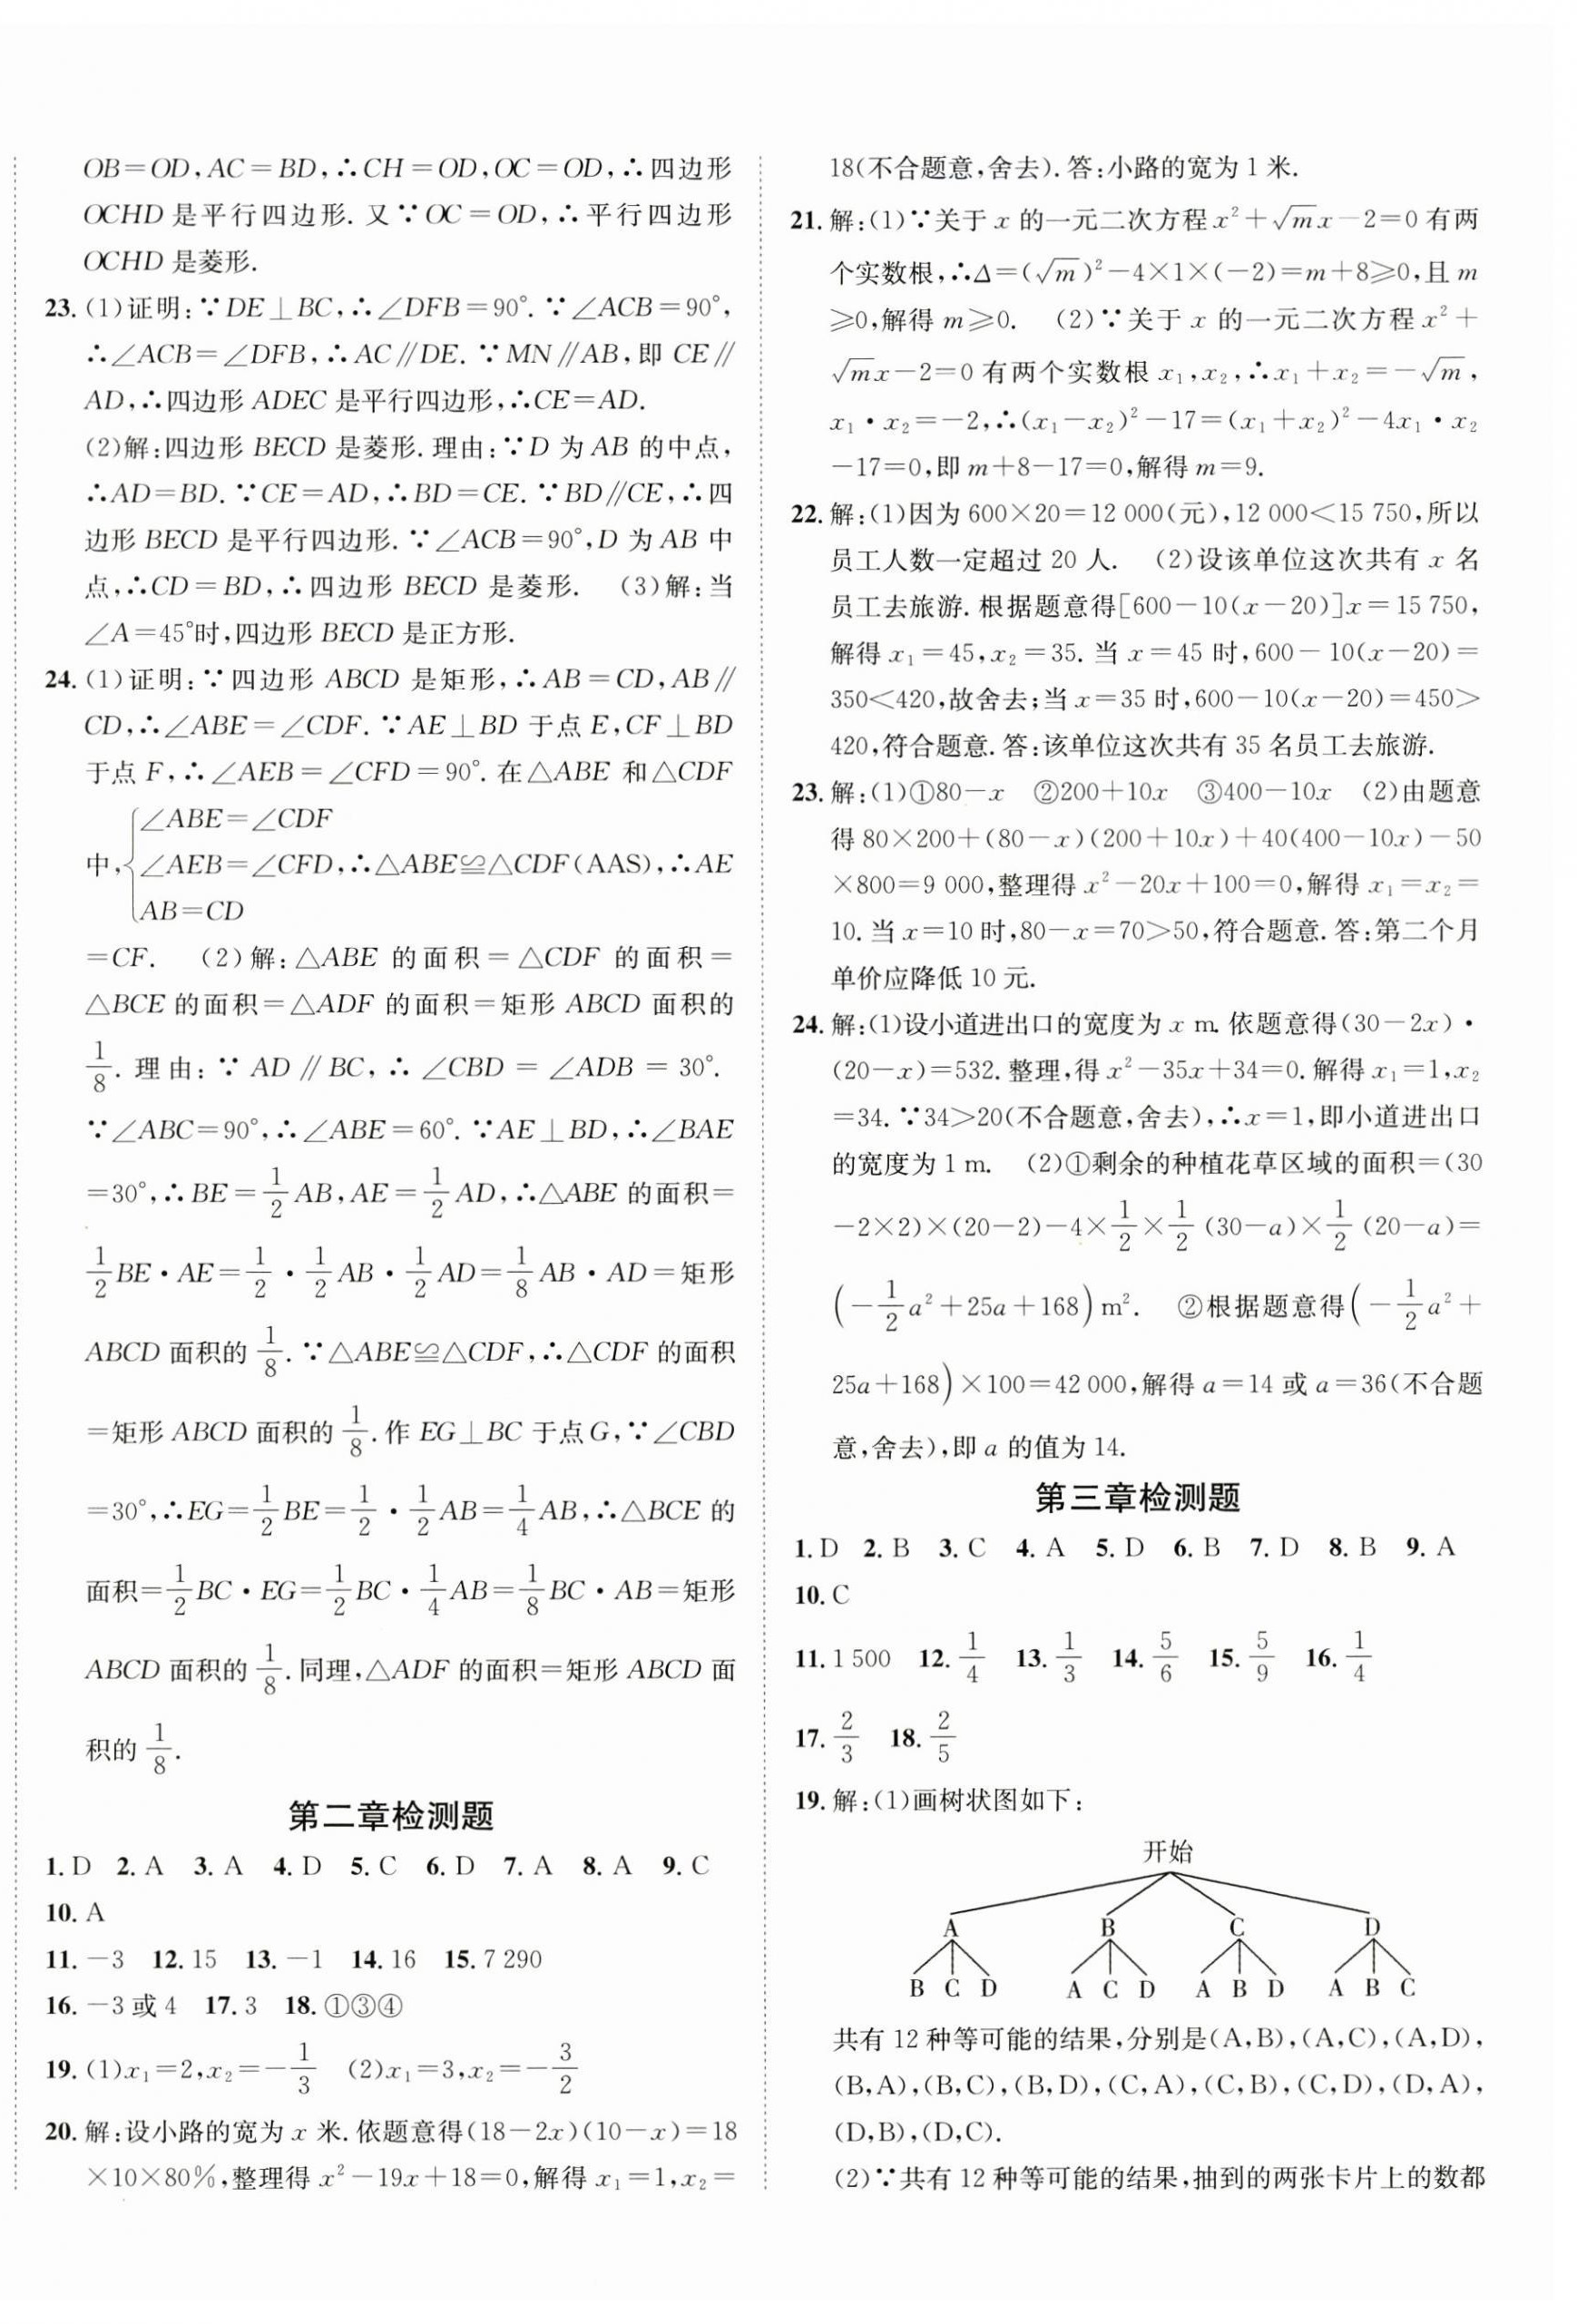 OB=OD,AC=BD,∴CH=OD,OC=OD,∴四边形
OCHD是平行四边形.又∵OC=OD,∴平行四边形
OCHD是菱形.
23.(1)证明:∵DE⊥BC,∴∠DFB=90°.∵∠ACB=90°,
∴∠ACB=∠DFB,∴AC∥DE.∵MN∥AB,即CE∥
AD,∴四边形ADEC是平行四边形,∴CE=AD.
(2)解:四边形BECD是菱形.理由:∵D为AB的中点,
∴AD=BD.∵CE=AD,∴BD=CE.∵BD∥CE,∴四
边形BECD是平行四边形.∵∠ACB=90°,D为AB中
点,∴CD=BD,∴四边形BECD是菱形. (3)解:当
∠A=45°时,四边形BECD是正方形.
24.(1)证明:∵四边形ABCD是矩形,∴AB=CD,AB∥
CD,∴∠ABE=∠CDF.∵AE⊥BD于点E,CF⊥BD
于点F,∴∠AEB=∠CFD=90°.在△ABE和△CDF
∠ABE=∠CDF
中,{∠AEB=∠CFD,∴△ABE≌△CDF(AAS),∴AE
AB=CD
=CF. (2)解:△ABE的面积=△CDF的面积=
△BCE的面积=△ADF的面积=矩形ABCD面积的
1/8.理由:∵AD∥BC,∴∠CBD=∠ADB=30°.
∵∠ABC=90°,∴∠ABE=60°.∵AE⊥BD,∴∠BAE
=30°,∴BE=1/2AB,AE=1/2AD,∴△ABE的面积=
1/2BE·AE=1/2·1/2AB·1/2AD=1/8AB·AD=矩形
ABCD面积的1/8.∵△ABE≌△CDF,∴△CDF的面积
=矩形ABCD面积的1/8.作EG⊥BC于点G,∵∠CBD
=30°,∴EG=1/2BE=1/2·1/2AB=1/4AB,∴△BCE的
面积=1/2BC·EG=1/2BC·1/4AB=1/8BC·AB=矩形
ABCD面积的1/8.同理,△ADF的面积=矩形ABCD面
积的1/8.
第二章检测题
1.D 2.A 3.A 4.D 5.C 6.D 7.A 8.A 9.C
10.A
11.-3 12.15 13.-1 14.16 15.7 290
16.-3或4 17.3 18.①③④
19.(1)x₁=2,x₂=-1/3 (2)x₁=3,x₂=-3/2
20.解:设小路的宽为x米.依题意得(18-2x)(10-x)=18
×10×80%,整理得x²-19x+18=0,解得x₁=1,x₂=
18(不合题意,舍去).答:小路的宽为1米.
21.解:(1)∵关于x的一元二次方程x²+√m x-2=0有两
个实数根,∴Δ=(√m)²-4×1×(-2)=m+8≥0,且m
≥0,解得m≥0. (2)∵关于x的一元二次方程x²+
√m x-2=0有两个实数根x₁,x₂,∴x₁+x₂=-√m,
x₁·x₂=-2,∴(x₁-x₂)²-17=(x₁+x₂)²-4x₁·x₂
-17=0,即m+8-17=0,解得m=9.
22.解:(1)因为600×20=12 000(元),12 000<15 750,所以
员工人数一定超过20人. (2)设该单位这次共有x名
员工去旅游.根据题意得[600-10(x-20)]x=15 750,
解得x₁=45,x₂=35.当x=45时,600-10(x-20)=
350<420,故舍去;当x=35时,600-10(x-20)=450>
420,符合题意.答:该单位这次共有35名员工去旅游.
23.解:(1)①80-x ②200+10x ③400-10x (2)由题意
得80×200+(80-x)(200+10x)+40(400-10x)-50
×800=9 000,整理得x²-20x+100=0,解得x₁=x₂=
10.当x=10时,80-x=70>50,符合题意.答:第二个月
单价应降低10元.
24.解:(1)设小道进出口的宽度为x m.依题意得(30-2x)·
(20-x)=532.整理,得x²-35x+34=0.解得x₁=1,x₂
=34.∵34>20(不合题意,舍去),∴x=1,即小道进出口
的宽度为1 m. (2)①剩余的种植花草区域的面积=(30
-2×2)×(20-2)-4×1/2×1/2(30-a)×1/2(20-a)=
(-1/2a²+25a+168)m². ②根据题意得(-1/2a²+
25a+168)×100=42 000,解得a=14或a=36(不合题
意,舍去),即a的值为14.
第三章检测题
1.D 2.B 3.C 4.A 5.D 6.B 7.D 8.B 9.A
10.C
11.1 500 12.1/4 13.1/3 14.5/6 15.5/9 16.1/4
17.2/3 18.2/5
19.解:(1)画树状图如下:
开始
A B C D
B C D A C D A B D A B C
共有12种等可能的结果,分别是(A,B),(A,C),(A,D),
(B,A),(B,C),(B,D),(C,A),(C,B),(C,D),(D,A),
(D,B),(D,C).
(2)∵共有12种等可能的结果,抽到的两张卡片上的数都